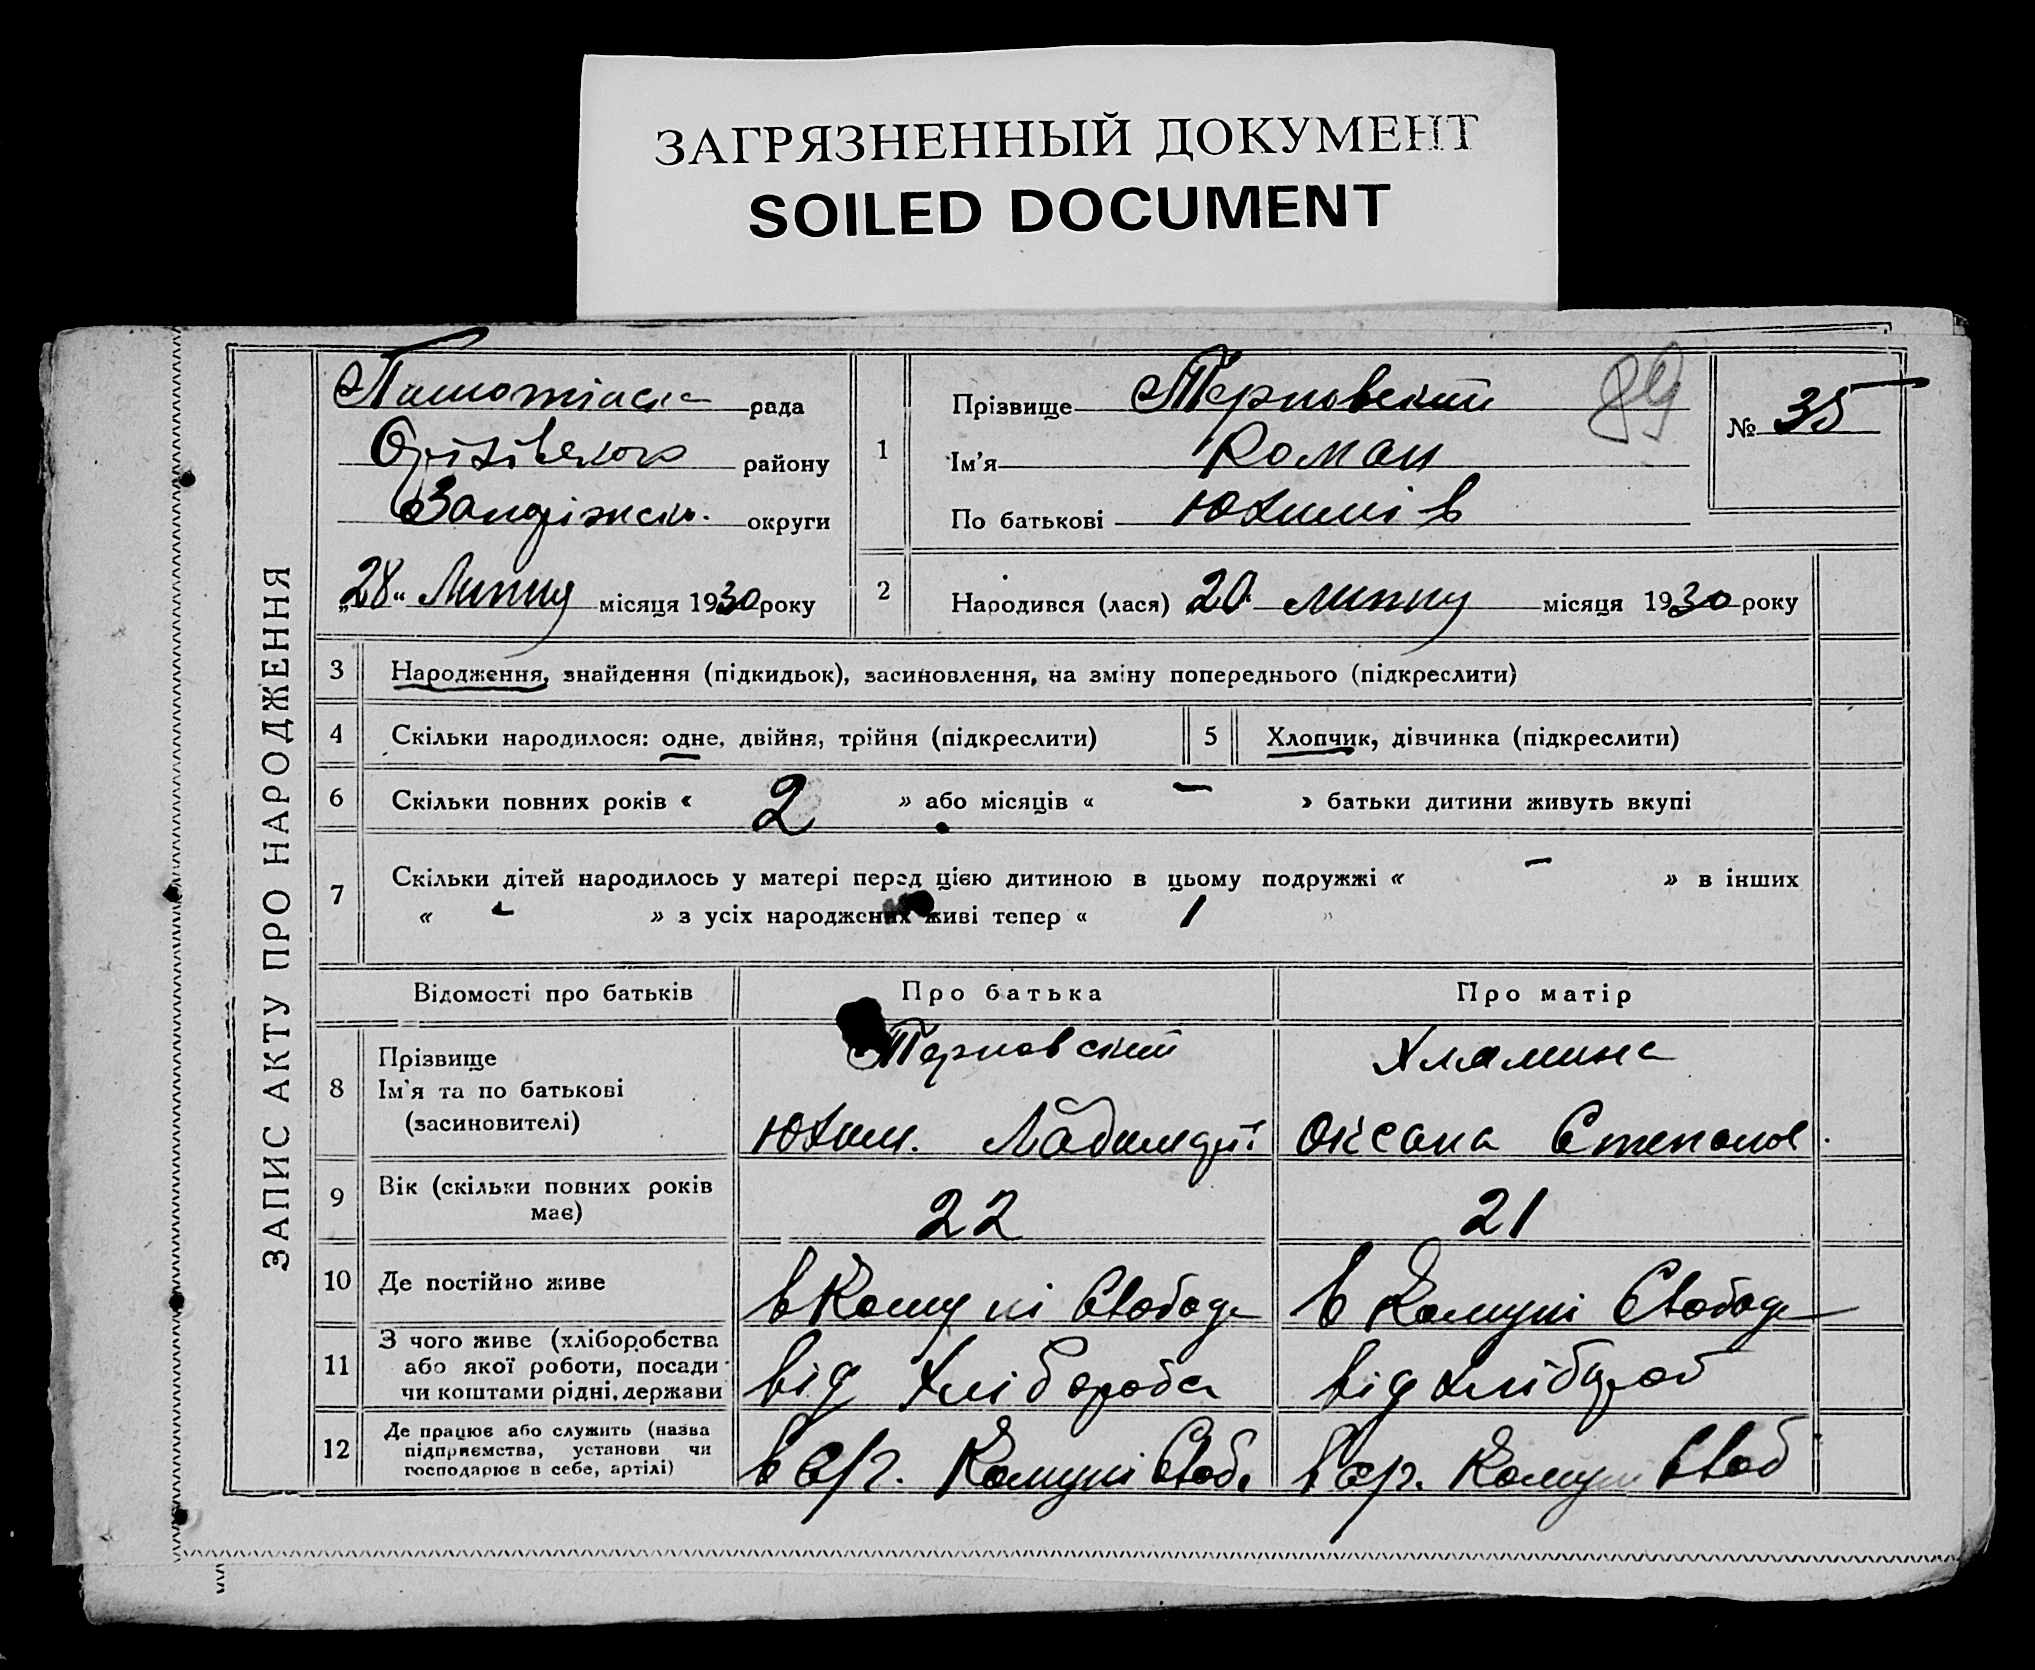 ЗАГРЯЗНЕННЫЙ ДОКУМЕНТ
SOILED DOCUMENT
ЗАПИС АКТУ ПРО НАРОДЖЕННЯ
рада
Оріхівского району
Запоріжськ. округи
„28“ Липня місяця 1930 року
1
Прізвище Терновский
Ім'я Роман
По батькові Юхимів
89
№ 35
2 Народився (лася) 20 липня місяця 1930 року
3 Народження, знайдення (підкидьок), засиновлення, на зміну попереднього (підкреслити)
4 Скільки народилося: одне, двійня, трійня (підкреслити)
5 Хлопчик, дівчинка (підкреслити)
6 Скільки повних років « 2 » або місяців « — » батьки дитини живуть вкупі
7 Скільки дітей народилось у матері перед цією дитиною в цьому подружжі « — » в інших
« - » з усіх народжених живі тепер « 1 »
Відомості про батьків Про батька Про матір
8 Прізвище
Ім'я та по батькові
(засиновителі)
Терновский
Юхим.
Оксана Степанов.
9 Вік (скільки повних років
має)
22 21
10 Де постійно живе
в Комуні Свобода в Комуні Свобода
11 З чого живе (хліборобства
або якої роботи, посади
чи коштами рідні, держави
від хлібороба від хлібороб
12 Де працює або служить (назва
підприємства, установи чи
господарює в себе, артілі)
Комуні Своб. Комуні Своб